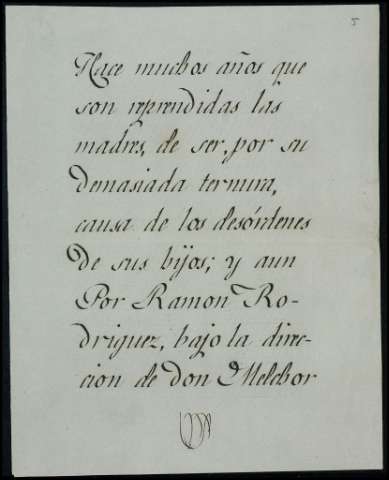 5
Hace muchos años que
son reprendidas las
madres, de ser, por su
demasiada ternura,
causa de los desórdenes
de sus hijos; y aun
Por Ramon Ro-
driguez, bajo la direc-
cion de Don Melchor